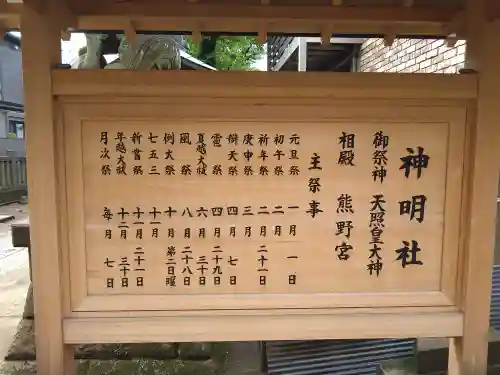 神明社
御祭神 天照皇大神
相殿 熊野宮
主祭事
元旦祭 一月 一日
初午祭 二月
祈年祭 二月 二十一日
庚申祭 三月
辯天祭 四月 七日
雷祭 四月 二十九日
夏越大祓 六月 三十日
風祭 八月 二十八日
例大祭 十月 第二日曜
七五三 十一月
新嘗祭 十一月 二十一日
年越大祓 十二月 三十日
月次祭 毎月 七日